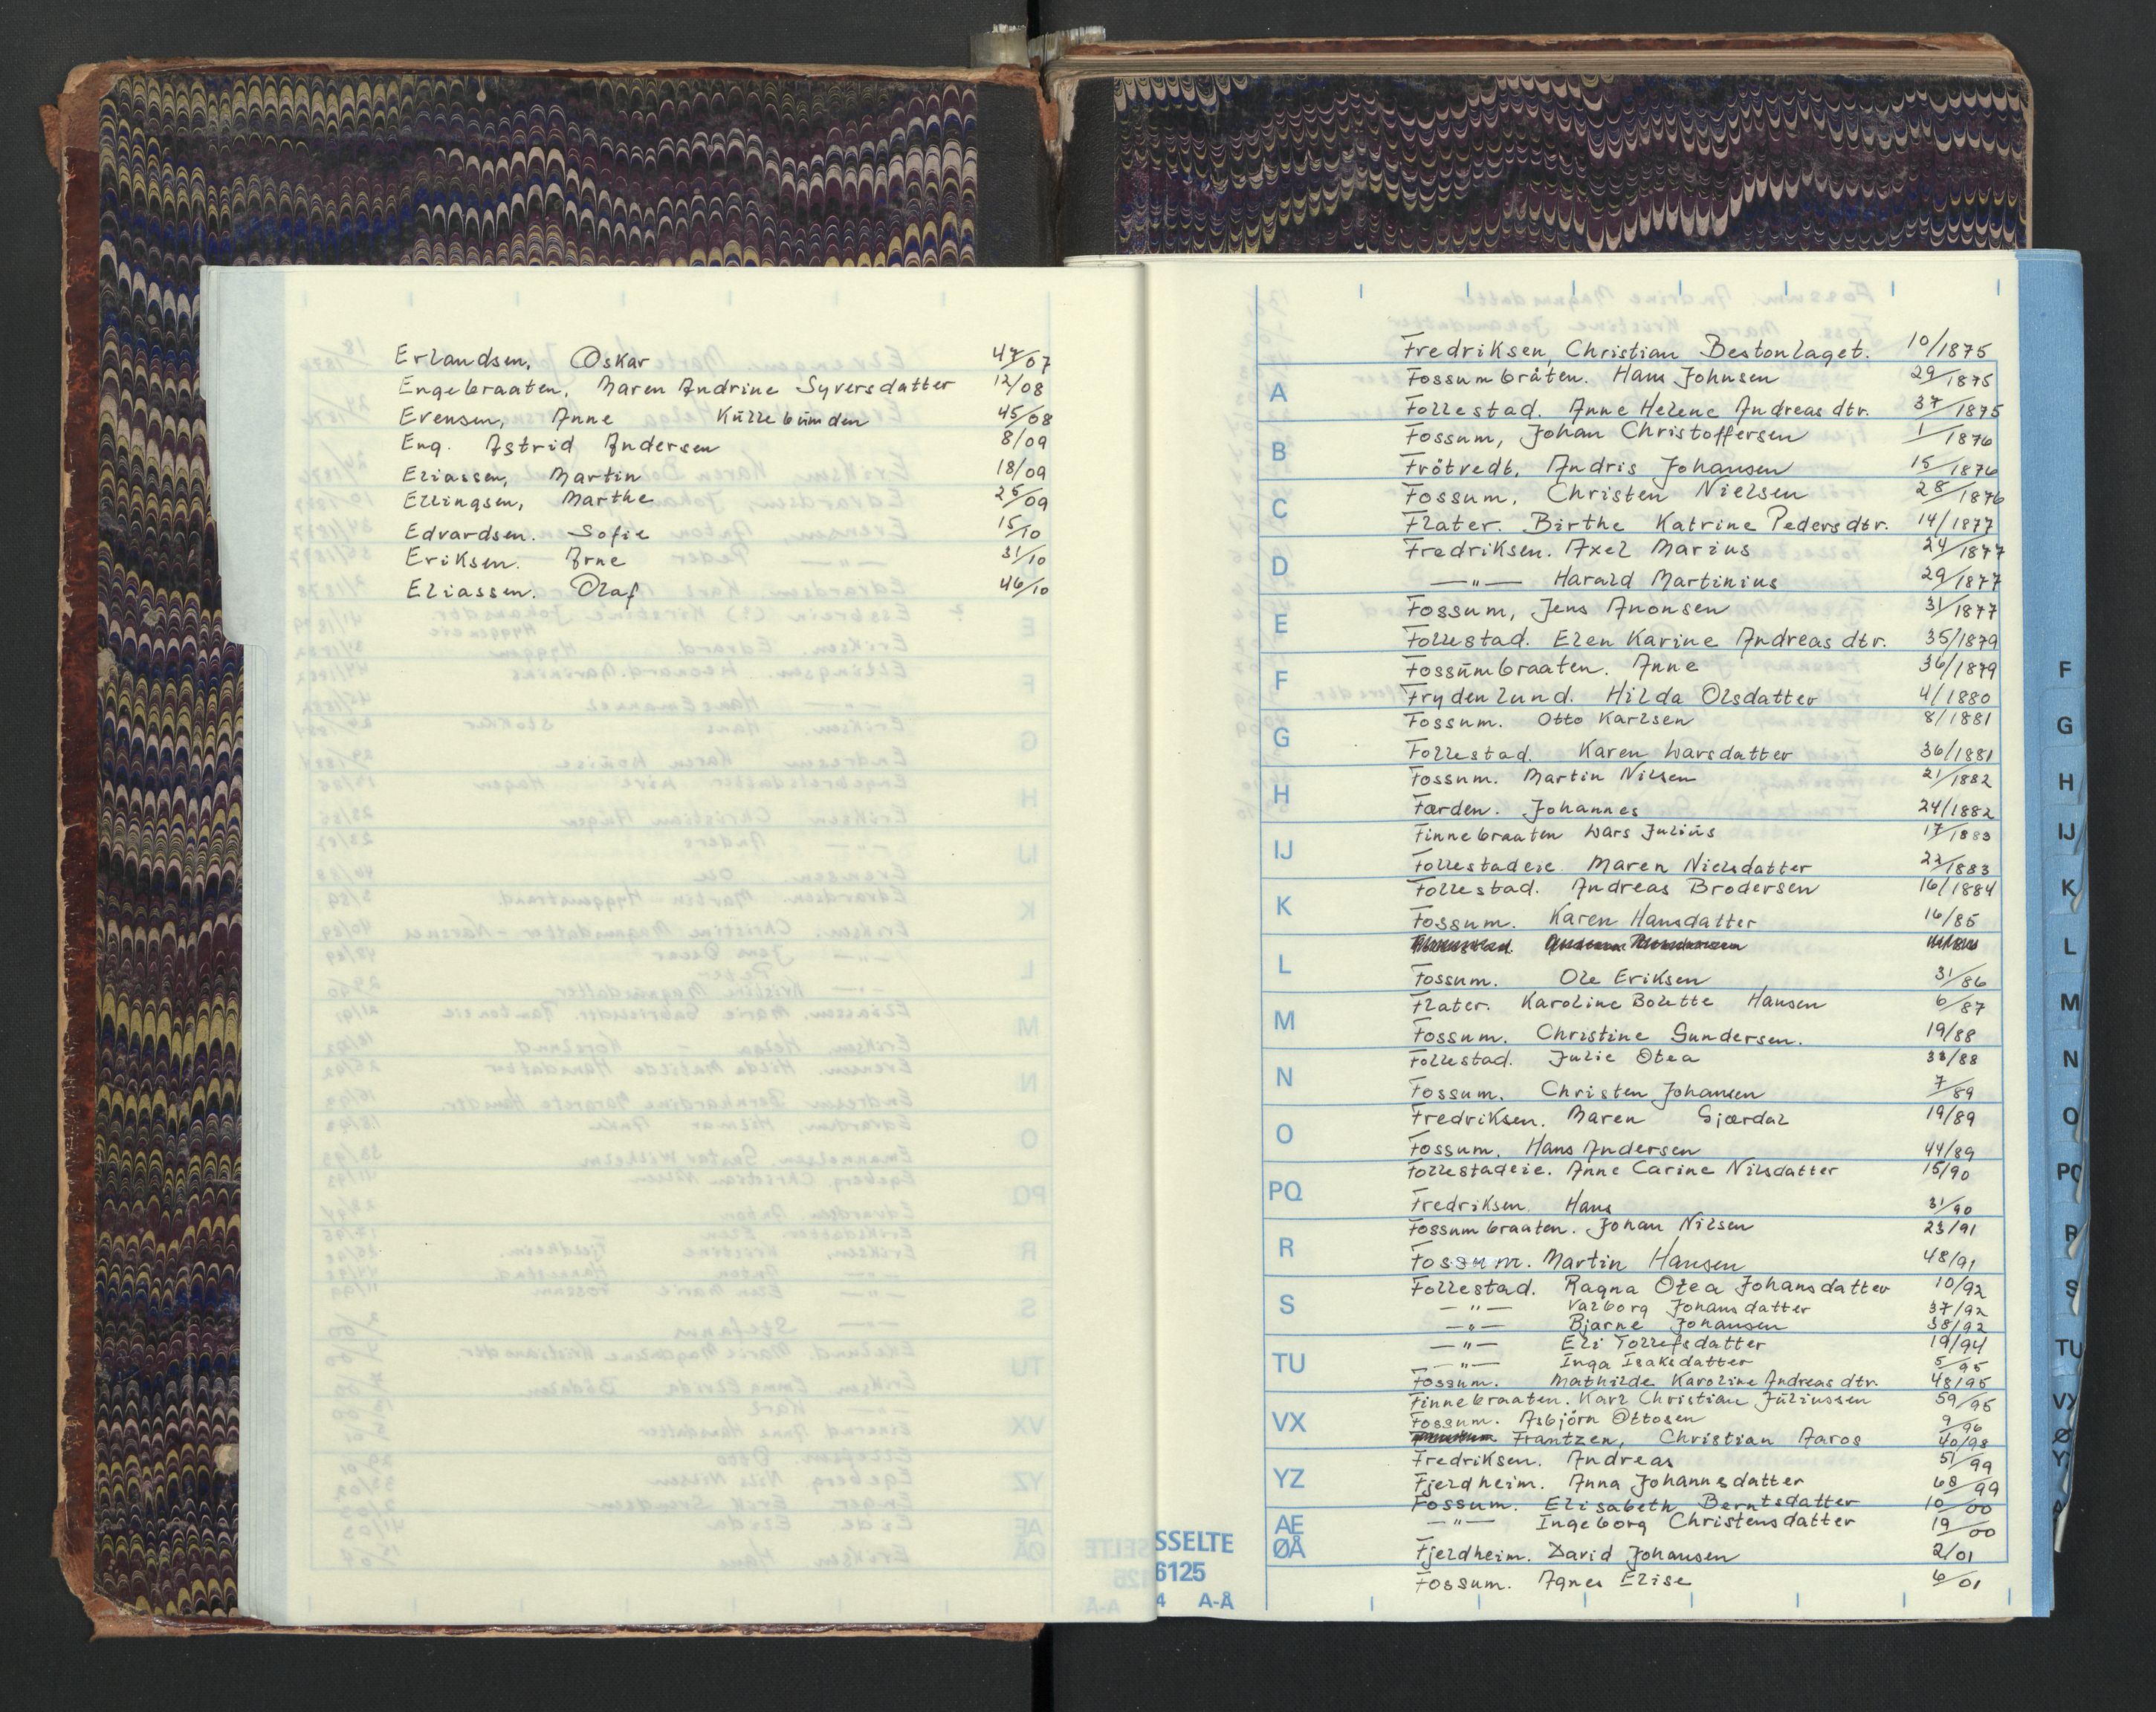 Erlandsen, Oskar 47/07
Engebraaten, Maren Andrine Syversdatter 12/08
Evensen, Anne Küllebünden 45/08
Eng. Astrid Andersen 8/09
Eliassen, Martin 18/09
Ellingsen, Marthe 25/09
Edvardsen. Sofie 15/10
Eriksen. Arne 31/10
Eliassen. Olaf 46/10
Fredriksen, Christian Bestonlaget. 10/1875
Fossumbråten. Hans Johnsen 29/1875
Follestad. Anne Helene Andreasdtr. 37/1875
Fossum, Johan Christoffersen 1/1876
Frötvedt, Andris Johansen 15/1876
Fossum, Christen Nielsen 28/1876
Flater. Birthe Katrine Pedersdtr. 14/1877
Fredriksen. Axel Marius 24/1877
—"— Harald Martinius 29/1877
Fossum, Jens Anonsen 31/1877
Follestad. Elen Karine Andreasdtr. 35/1879
Fossümbraaten. Anne 36/1879
Frydenlund. Hilda Olsdatter 4/1880
Fossum. Otto Karlsen 8/1881
Follestad. Karen Larsdatter 36/1881
Fossum. Martin Nilsen 21/1882
Færden. Johannes 24/1882
Finnebraaten Lars Juliüs 17/1883
Follestadeie. Maren Nielsdatter 22/1883
Follestad. Andreas Brodersen 16/1884
Fossum. Karen Hansdatter 16/85
Fossum. Ole Eriksen 31/86
Flater. Karoline Bolette Hansen 6/87
Fossum. Christine Gundersen. 19/88
Follestad. Julie Otea 33/88
Fossum. Christen Johansen 7/89
Fredriksen. Maren Gjærdal 19/89
Fossum, Hans Andersen 44/89
Follestadeie. Anne Carine Nilsdatter 15/90
Fredriksen. Hans 31/90
Fossumbraaten. Johan Nilsen 23/91
Fossum. Martin Hansen 48/91
Follestad. Ragna Otea Johansdatter 10/92
—"— Valborg Johansdatter 37/92
—"— Bjarne Johansen 38/92
—"— Eli Tollefsdatter 19/94
—"— Inga Isaksdatter 5/95
Fossum. Mathilde Karoline Andreasdtr. 48/95
Finnebraaten. Karl Christian Jüliussen 59/95
Fossum. Asbjörn Ottosen 9/96
Frantzen, Christian Aaros 40/98
Fredriksen. Andreas 51/99
Fjeldheim. Anna Johannesdatter 68/99
Fossum. Elisabeth Berntsdatter 10/00
—"— Ingeborg Christensdatter 19/00
Fjeldheim. David Johansen 2/01
Fossum. Agnes Elise 6/01
A
B
C
D
E
F
G
H
IJ
K
L
M
N
O
PQ
R
S
TU
VX
YZ
AE
ØÅ
SSELTE
6125
4 A-Å
F
G
H
IJ
K
L
M
N
O
PQ
R
S
TU